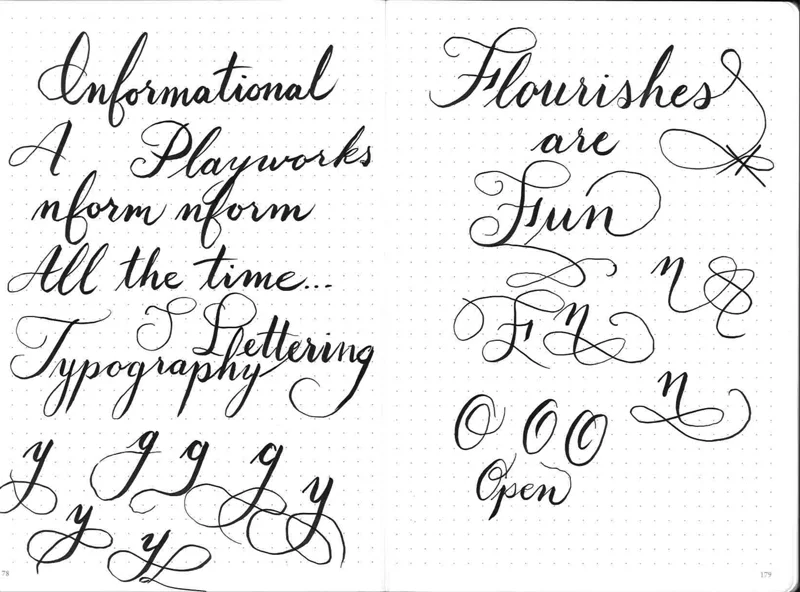 Informational
A Playworks
nform nform
All the time...
S Lettering
Typography
y g g g y
y y
78
Flourishes
are
Fun
n
F n
n
O O O
Open
179